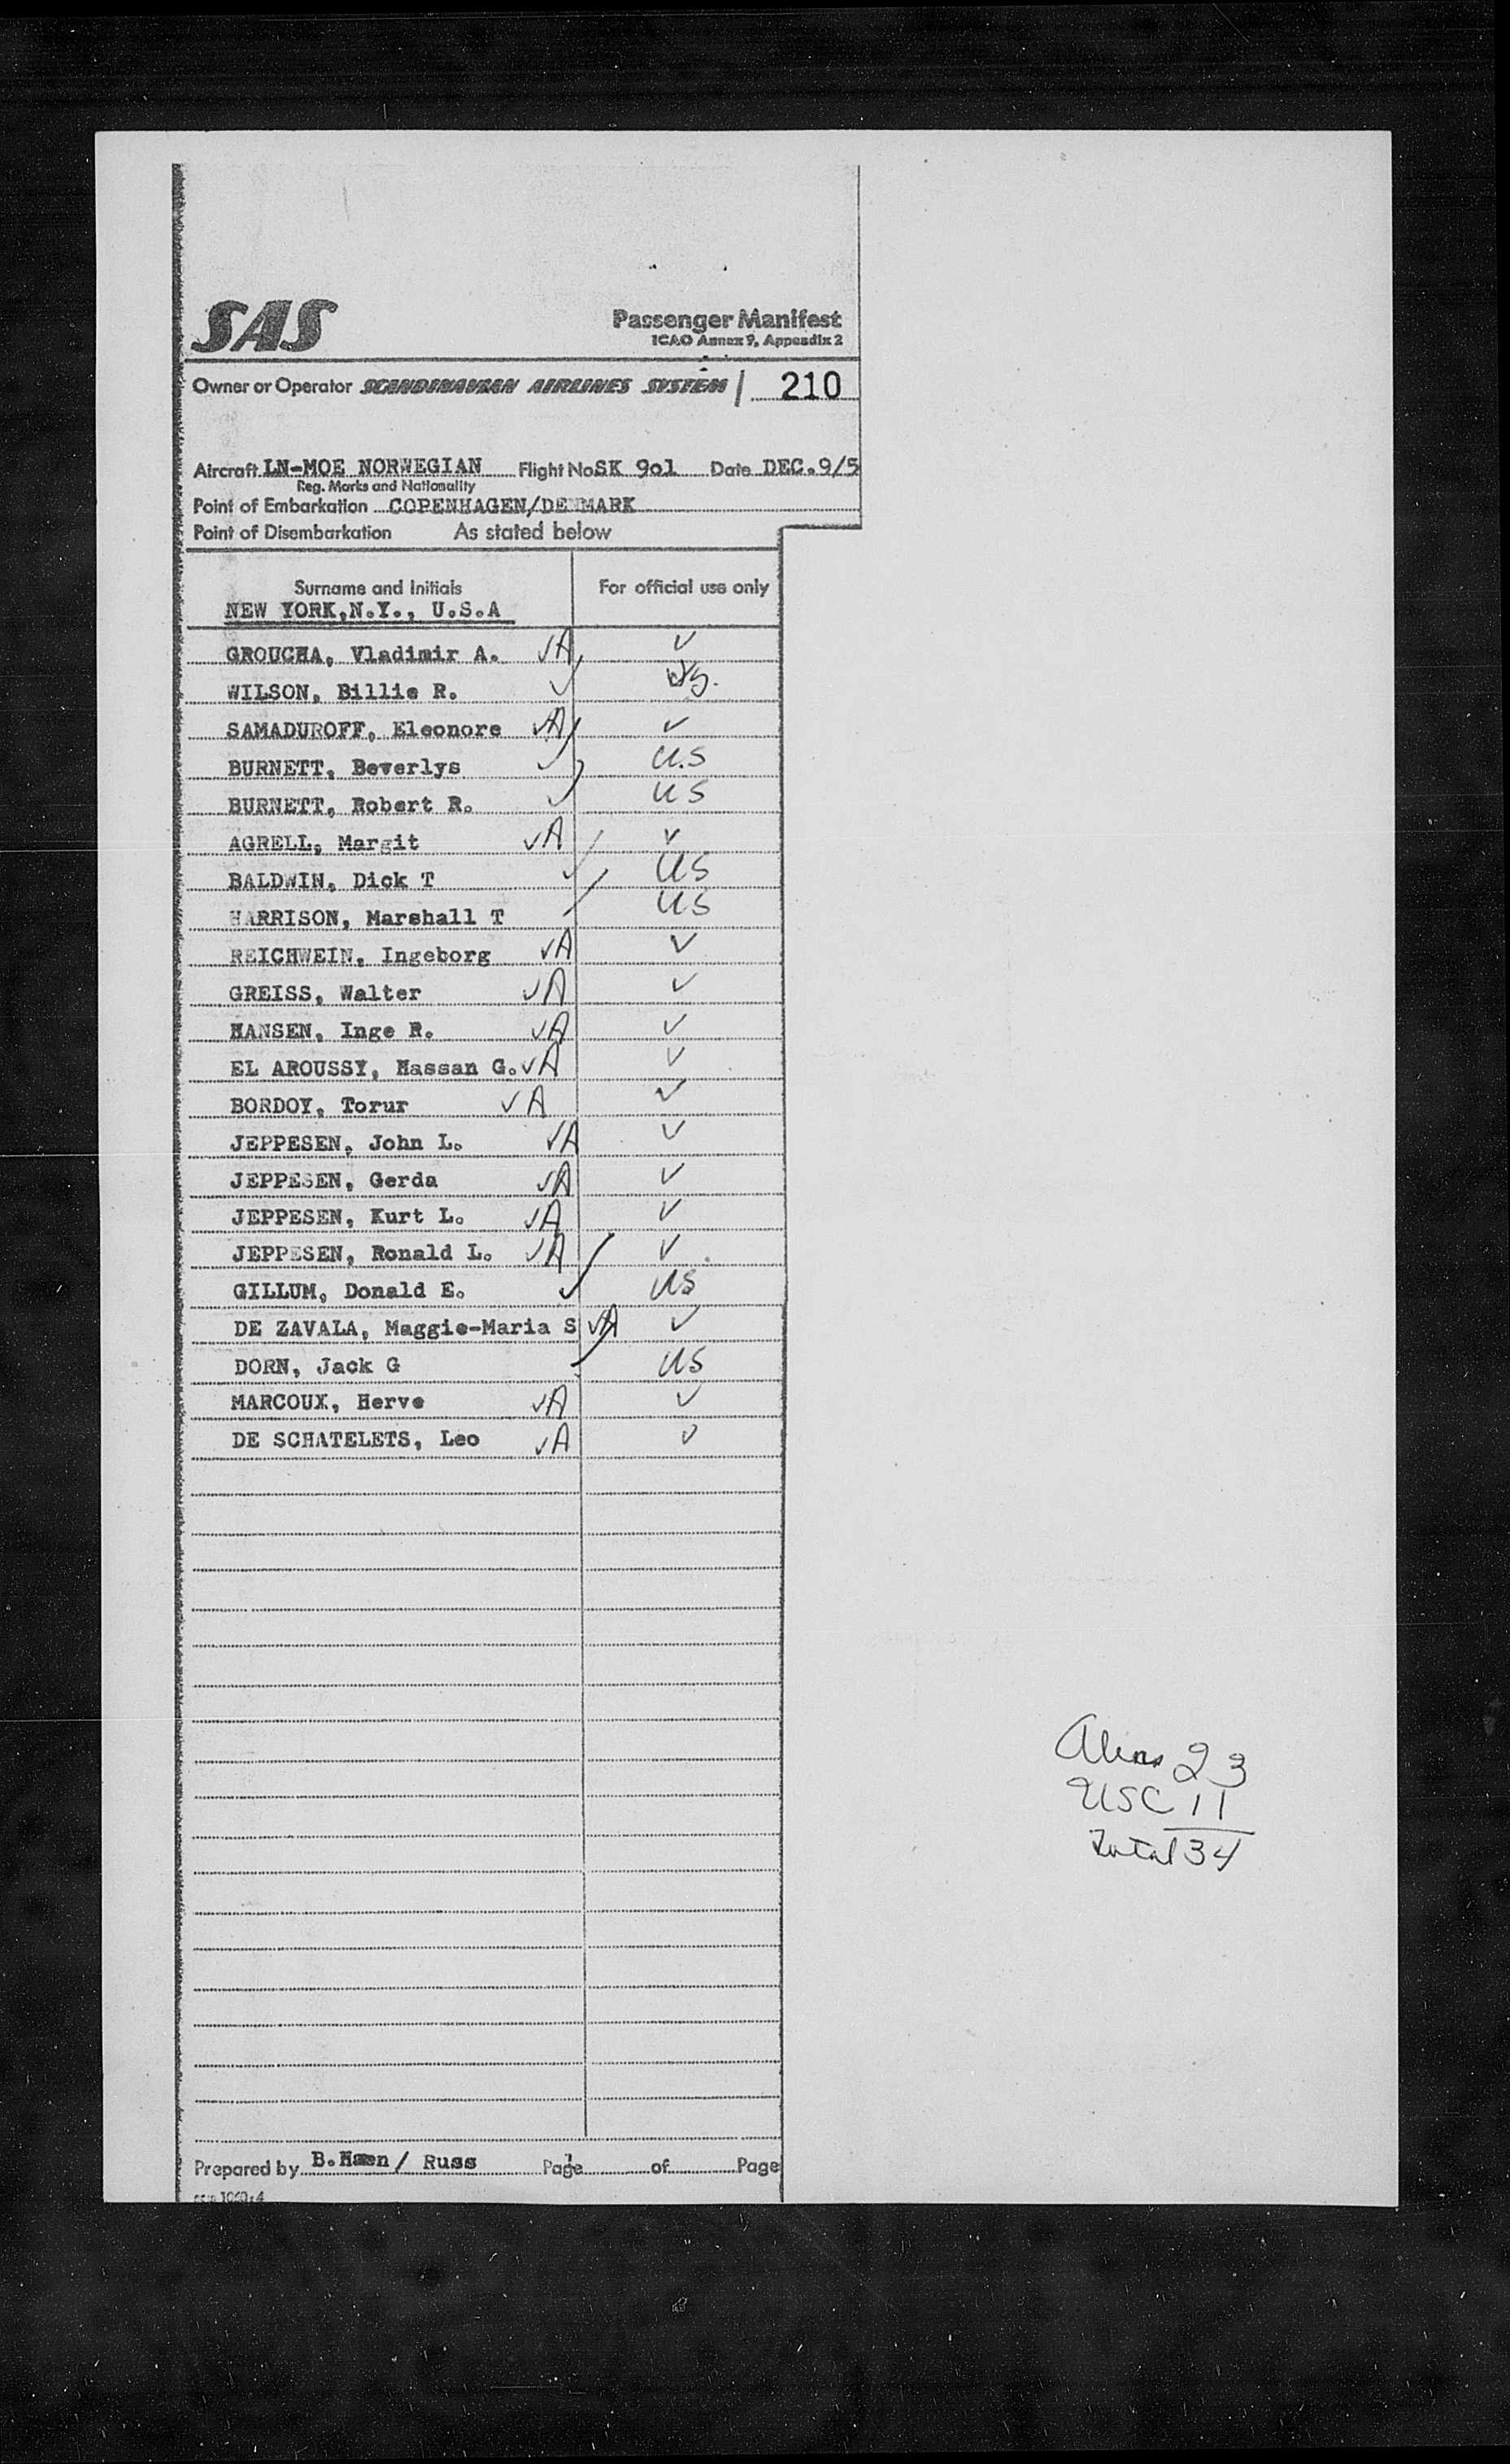 SAS
Passenger Manifest
ICAO Annex 9, Appendix 2
Owner or Operator SCANDINAVIAN AIRLINES SYSTEM / 210
Aircraft LN-MOE NORWEGIAN Flight No SK 901 Date DEC.9/5
Reg. Marks and Nationality
Point of Embarkation COPENHAGEN/DENMARK
Point of Disembarkation As stated below
Surname and Initials For official use only
NEW YORK,N.Y., U.S.A
GROUCHA, Vladimir A. ✓A ✓
WILSON, Billie R. ✓
SAMADUROFF, Eleonore ✓A ✓
BURNETT, Beverlys ✓ U.S
BURNETT, Robert R. ✓ US
AGRELL, Margit ✓A ✓
BALDWIN, Dick T ✓ US
HARRISON, Marshall T / US
REICHWEIN, Ingeborg ✓A ✓
GREISS, Walter ✓A ✓
HANSEN, Inge R. ✓A ✓
EL AROUSSY, Hassan G. ✓A ✓
BORDOY, Torur ✓A ✓
JEPPESEN, John L. ✓A ✓
JEPPESEN, Gerda ✓A ✓
JEPPESEN, Kurt L. ✓A ✓
JEPPESEN, Ronald L. ✓A ✓
GILLUM, Donald E. ✓ US
DE ZAVALA, Maggie-Maria S ✓A ✓
DORN, Jack G US
MARCOUX, Herve ✓A ✓
DE SCHATELETS, Leo ✓A ✓
Aliens 23
USC 11
Total 34
Prepared by / Russ Page 1 of Page